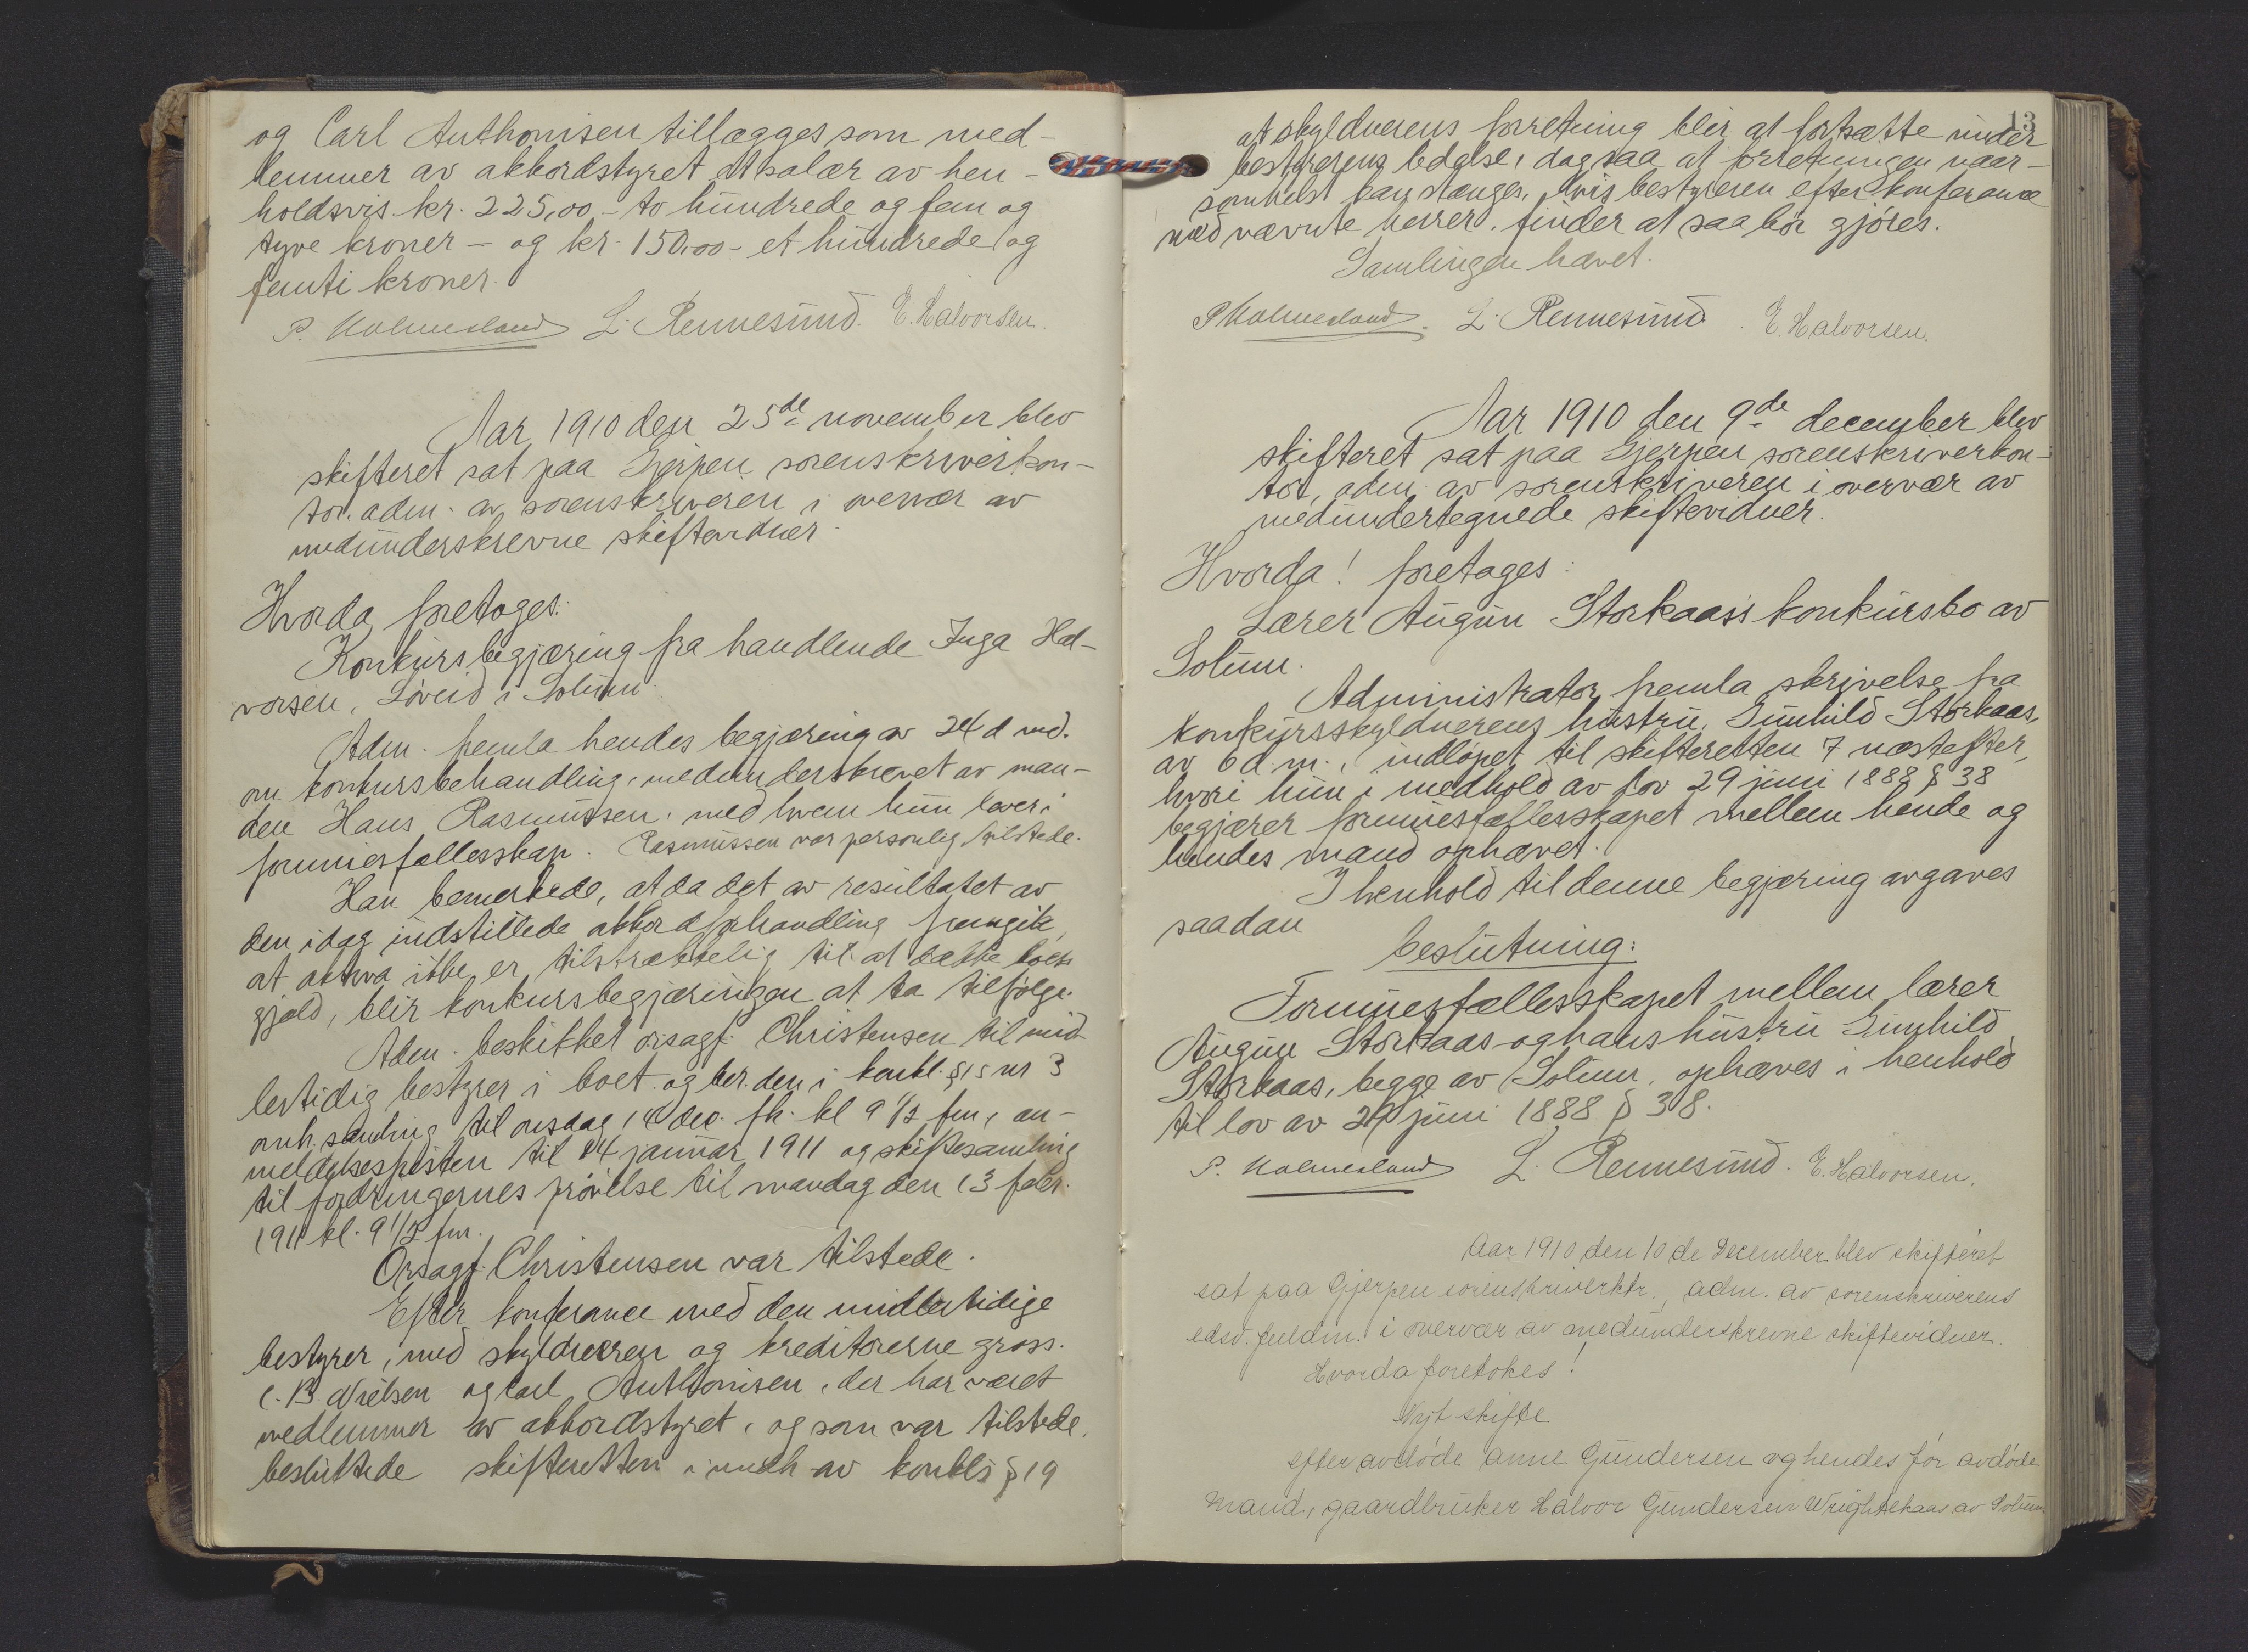 og Carl Anthonisen tillægges som med-
lemmer av akkordstyret et salær av hen-
holdsvis kr. 225,00 - to hundrede og fem og
tyve kroner - og kr. 150,00 - et hundrede og
femti kroner.
P. Holmesland L. Rennesund. E. Halvorsen.
Aar 1910 den 25de november blev
skifteret sat paa Gjerpen sorenskriverkon-
tor. adm. av sorenskriveren i overvær av
medunderskrevne skiftevidner.
Hvorda foretoges:
Konkursbegjæring fra handlende Inga Hal-
vorsen, Løveid i Solum.
Adm. fremla hendes begjæring av 24 d md.
om konkursbehandling, medunderskrevet av man-
den Hans Rasmussen, med hvem hun lever i
formuesfællesskap. Rasmussen var personlig tilstede.
Han bemerkede, at da det av resultatet av
den idag indstillede akkordforhandling fremgik,
at aktiva ikke er tilstrækkelig til at dække boets
gjæld, blir konkursbegjæringen at ta tilfølge.
Adm. beskikket o.r.sagf. Christensen til mid-
lertidig bestyrer i boet og ber. den i konkl. § 15 nr 3
omh. samling til onsdag 14 dec. fk. kl 9 1/2 fm, an-
meldelsesfristen til 14 januar 1911 og skiftesamling
til fordringernes prøvelse til mandag den 13 febr.
1911 kl. 9 1/2 fm.
Orsagf. Christensen var tilstede.
Efter konferance med den midlertidige
bestyrer, med skyldneren og kreditorerne gross.
C. B. Nielsen og Carl Anthonisen, der har været
medlemmer av akkordstyret, og som var tilstede,
besluttede skifteretten i medh av konkls § 19
13
at skyldnerens forretning blir at fortsætte under
bestyrerens ledelse, dog saa at forretningen naar-
somhelst kan stænges, hvis bestyreren efter konferance
med nævnte herrer finder at saa bør gjøres.
Samlingen hævet.
P Holmesland. L. Rennesund. E. Halvorsen.
Aar 1910 den 9de december blev
skifteret sat paa Gjerpen sorenskriverkon-
tor, adm. av sorenskriveren i overvær av
medundertegnede skiftevidner.
Hvorda! foretoges:
Lærer Augun Storkaas's konkursbo av
Solum.
Administrator fremla skrivelse fra
konkursskyldnerens hustru, Gunhild Storkaas,
av 6 d m., indløpet til skifteretten 7 næstefter,
hvori hun i medhold av lov 29 juni 1888 § 38
begjærer formuesfællesskapet mellem hende og
hendes mand ophævet.
I henhold til denne begjæring avgaves
saadan
beslutning:
Formuesfællesskapet mellem lærer
Augun Storkaas og hans hustru Gunhild
Storkaas, begge av Solum, ophæves i henhold
til lov av 29 juni 1888 § 38.
P. Holmesland L. Rennesund. E. Halvorsen.
Aar 1910 den 10de December blev skifteret
sat paa Gjerpen sorenskriverktr., adm. av sorenskriverens
edsv. fuldm. i overvær av medunderskrevne skiftevidner.
Hvorda foretokes!
Nyt skifte
efter avdøde Anne Gundersen og hendes før avdøde
mand, gaardbruker Halvor Gundersen Wrightekaas av Solum